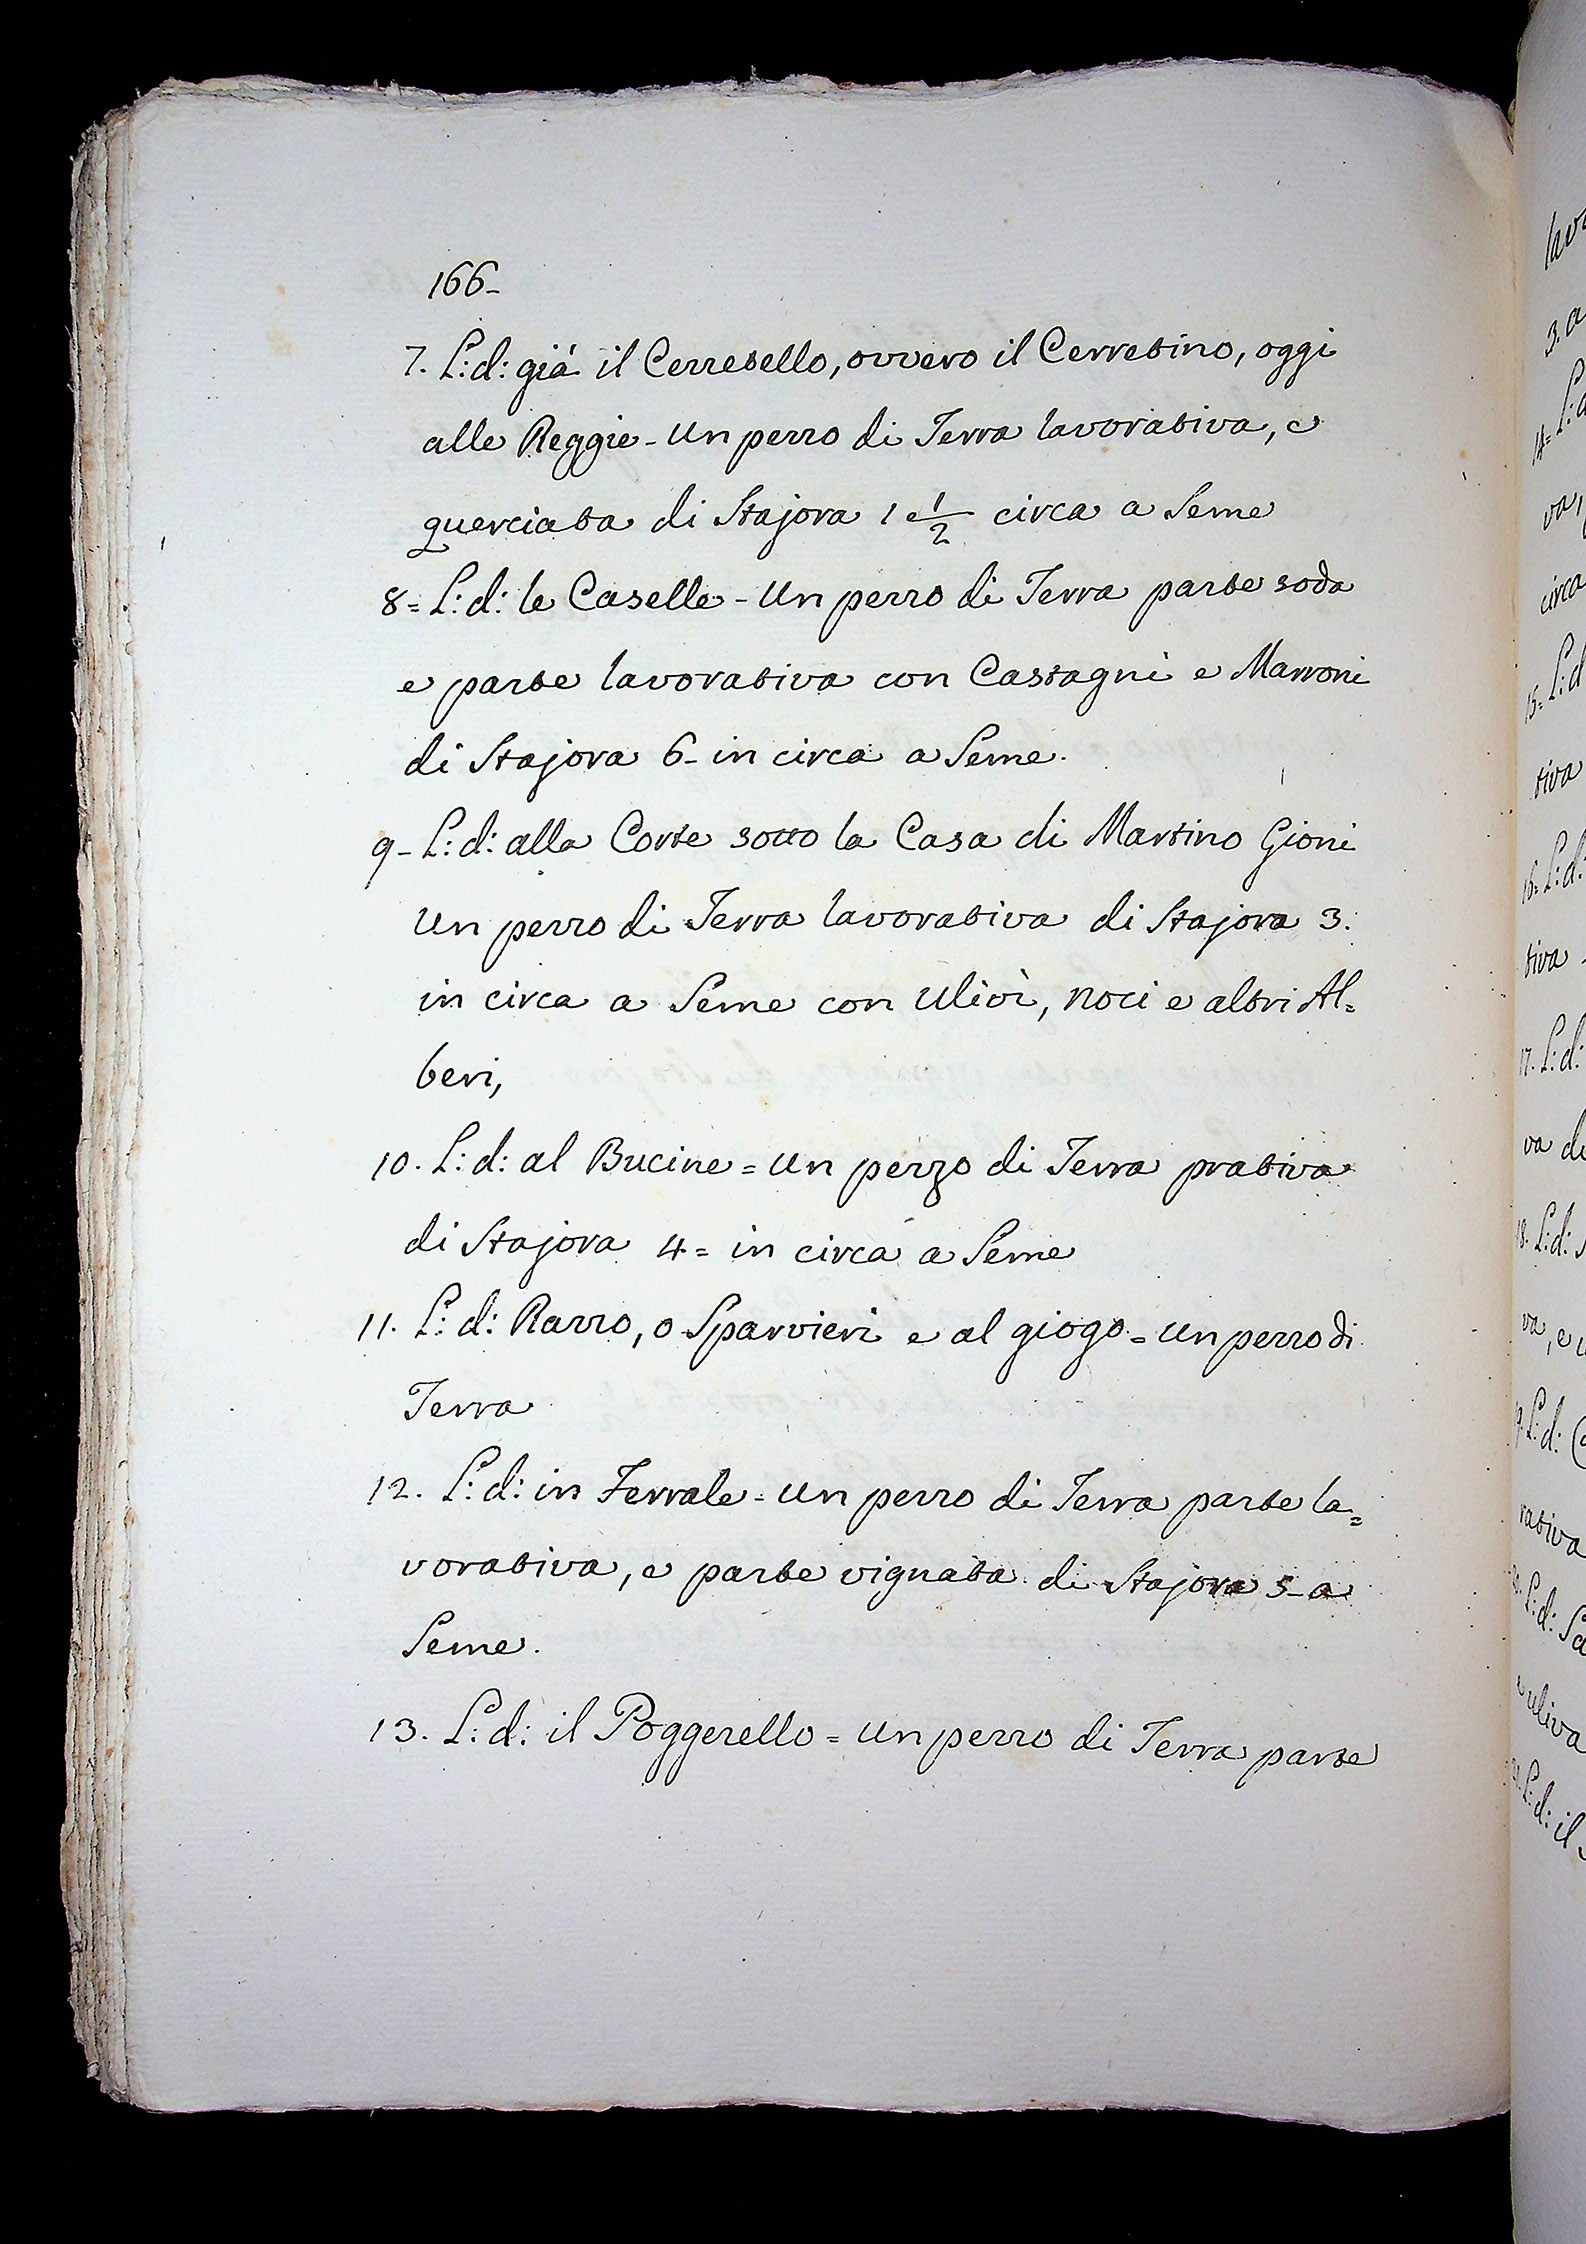 166-
7. L: d: già il Cerretello, ovvero il Cerretino, oggi
alle Reggie - Un pezzo di Terra lavorativa, e
querciata di Stajora 1 1/2 circa a Seme
8= L: d: le Caselle - Un pezzo di Terra parte soda
e parte lavorativa con Castagni e Marroni
di Stajora 6- in circa a Seme.
9- L: d: alla Corte sotto la Casa di Martino Gioni
Un pezzo di Terra lavorativa di Stajora 3.
in circa a Seme con Ulivi, Noci e altri Al=
beri,
10. L: d: al Bucine = Un pezzo di Terra prativa
di Stajora 4= in circa a Seme
11. L: d: Razzo, o Sparvieri e al giogo = Un pezzo di
Terra
12. L: d: in Ferrale - Un pezzo di Terra parte la=
vorativa, e parte vignata di Stajora 5- a
Seme.
13. L: d: il Poggerello = Un pezzo di Terra parte
3. a
14= L: d
va,
circa
15= L: d
tiva
16= L: d:
tiva
17. L: d:
va di
18. L: d:
va, e
L: d:
rativa
L: d:
uliva
L: d: il